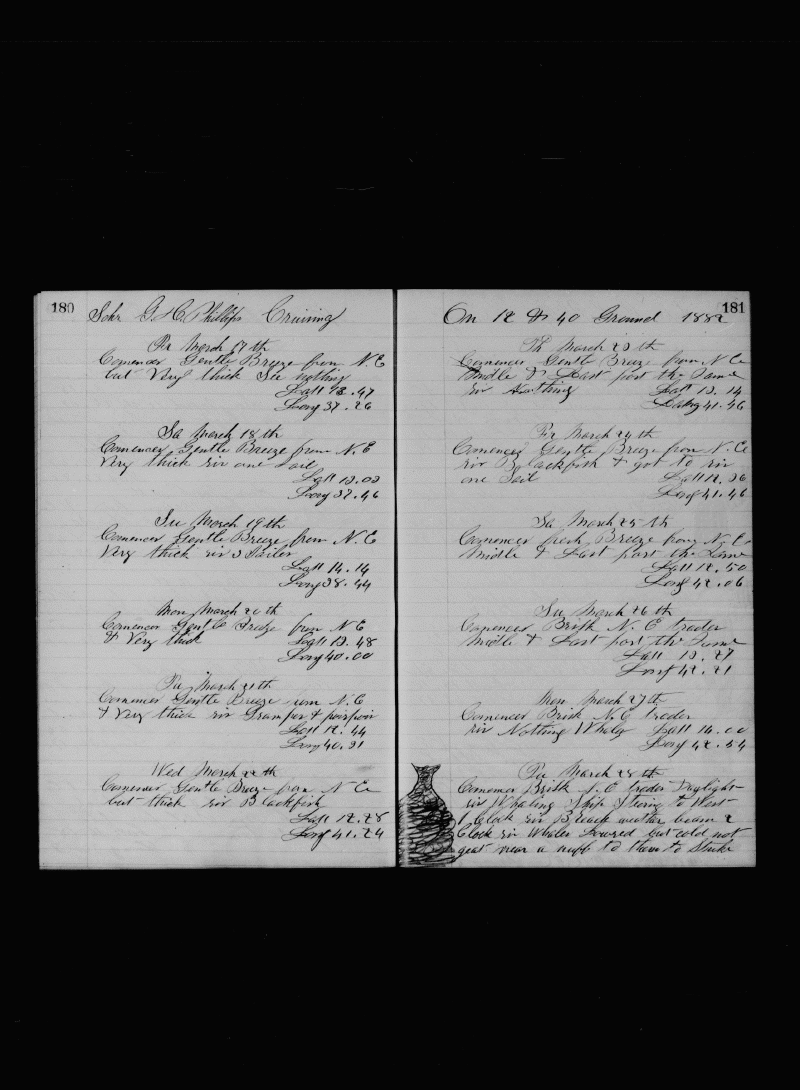 180
Schr G. H. Phillips Cruising
Fri March 17th
Comences Gentle Breeze from N. E
but Very thick See nothing
Latt 13.47
Long 37.26
Sa March 18th
Comences Gentle Breeze from N. E
Very thick sir one Sail
Latt 13.03
Long 37.46
Su March 19th
Comences Gentle Breeze from N. E
Very thick sir 3 Sailes
Latt 14.14
Long 38.44
Mon March 20th
Comences Gentle Breeze from N E
& Very thick Latt 13.48
Long 40.00
Tu March 21th
Comences Gentle Breeze from N. E
& Very thick sir Grampus & poirpois
Latt 12.44
Long 40.31
Wed March 22th
Comences Gentle Breeze from N E
but thick sir Blackfish
Latt 12.28
Long 41.24
181
On 12 & 40 Ground 1882
Th March 23th
Comences Gentle Breeze from N E
Middle & Last part the Same
sir Nothing Latt 13.14
Long 41.46
Fri March 24th
Comences Gentle Breeze from N. E
sir Blackfish & got to sir
one Sail Latt 12.36
Long 41.46
Sa March 25th
Comences fresh Breeze from N. E
Middle & Last part the Same
Latt 12.50
Long 42.06
Su March 26th
Comences Brisk N. E trades
Middle & Last part the Same
Latt 13.27
Long 42.21
Mon March 27th
Comences Brisk N. E trades
sir Nothing Whaly Latt 14.00
Long 42.54
Tu March 28th
Comences Brisk N. E trades Daylight
sir Whaling Ship to West
1 Clock sir Breach weather beam 2
Clock sir Whales Lowered but cold not
geat near a nuph to them to Strike